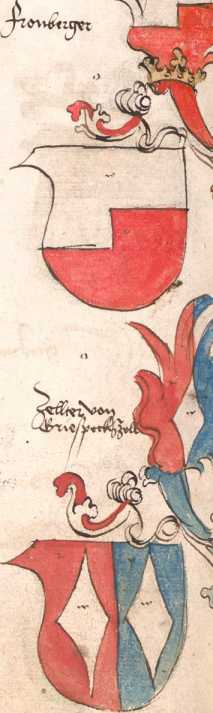 Fronberger
Zellter von
Griespeckhzell